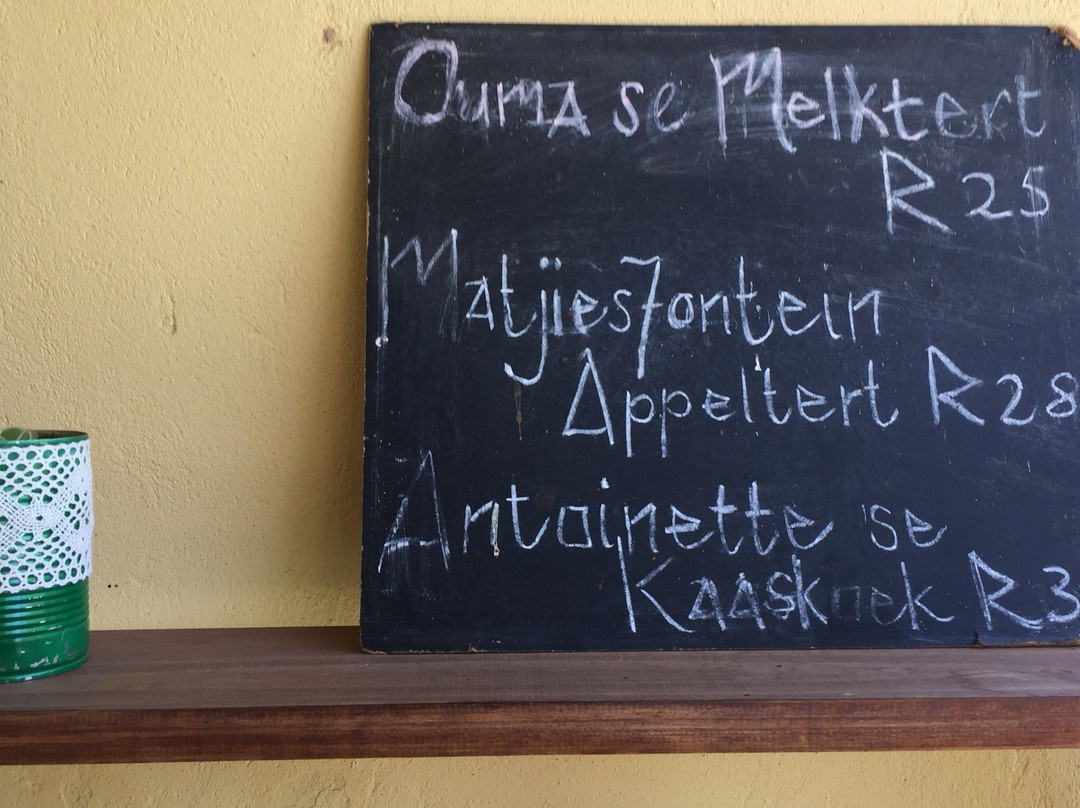 Ouma se Melktert
R 25
Matjiesfontein
Appeltert R28
Antoinette se
Kaaskoek R3